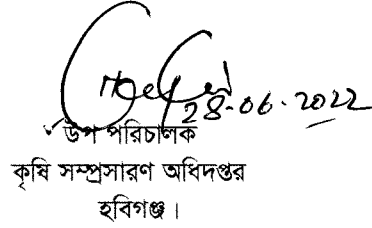 28-06-2022
উপ পরিচালক
কৃষি সম্প্রসারণ অধিদপ্তর
হবিগঞ্জ।